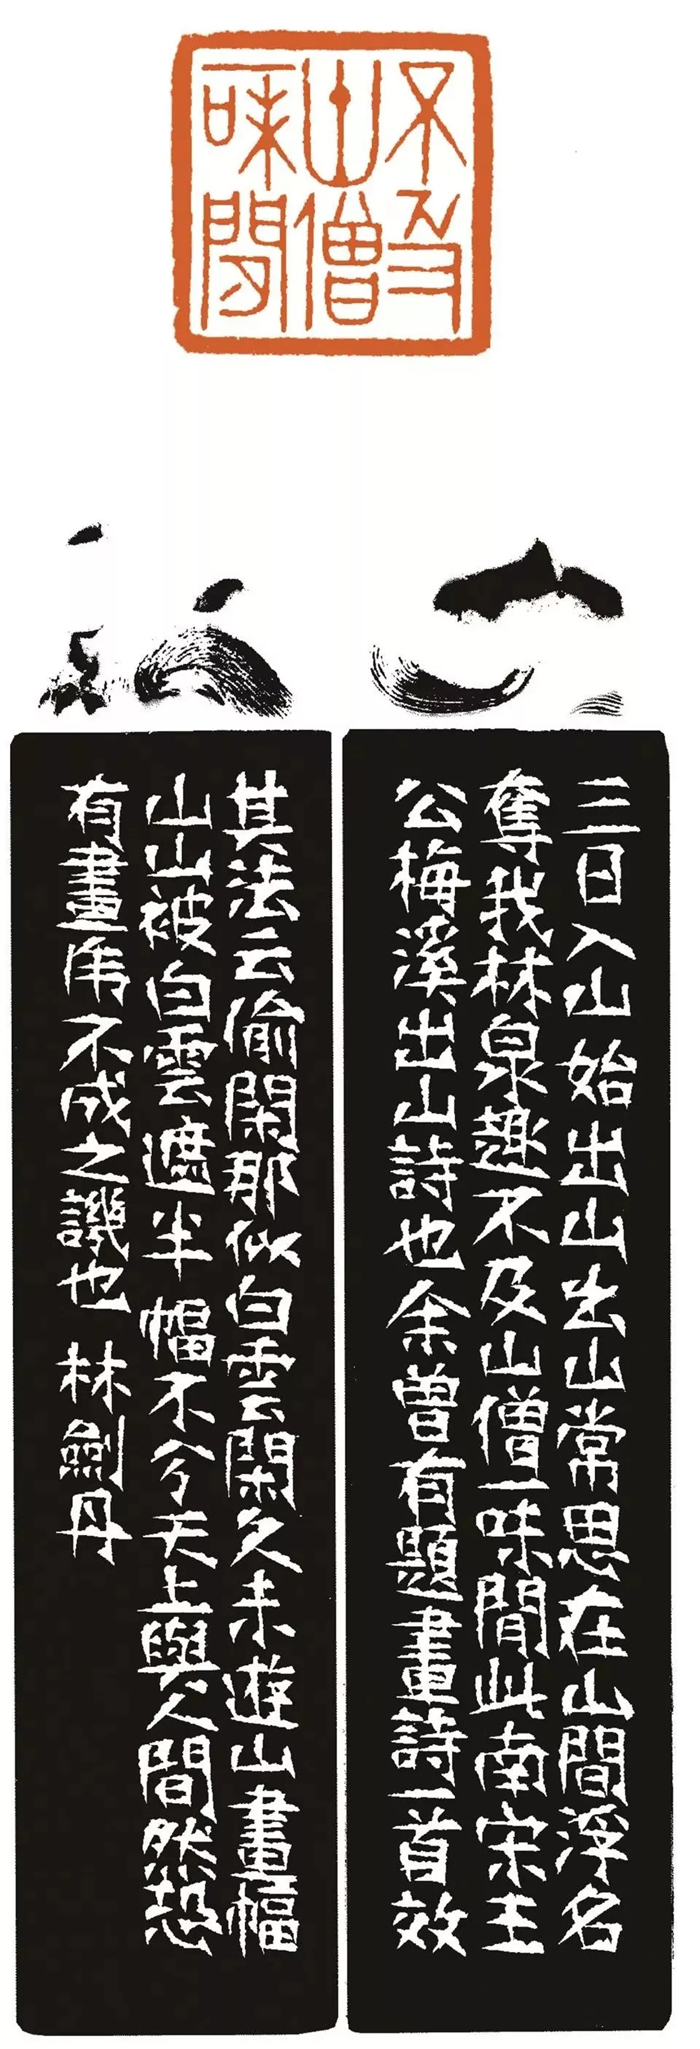 不及
山僧
一味閒
三日入山始出山出山常思在山間浮名
奪我林泉趣不及山僧一味閒此南宋王
公梅溪出山詩也余曾有題畫詩一首效
其法云偷閑那似白雲閑久未遊山畫幅
山山被白雲遮半幅不分天上與人間然恐
有畫虎不成之譏也林劍丹